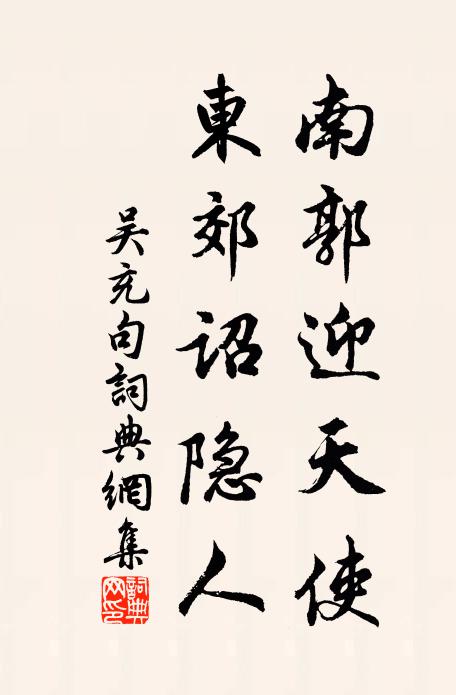 南郭迎天使
東郊詔隐人
吴充句詞典網集
詞典網印